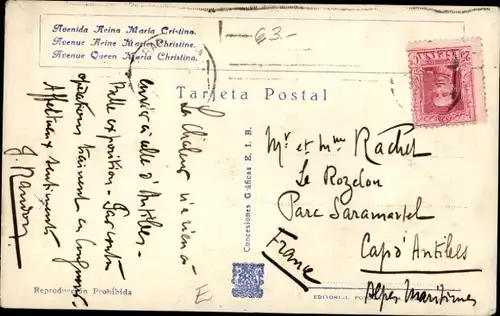 Avenida Reina Maria Cristina.
Avenue Reine Marie Christine.
Avenue Queen Maria Christina.
63.-
Tarjeta Postal
La chaleur n'a rien à
envier à celle d'Antibes -
Belle exposition - Par contre
opérations traînent en longueur.
Affectueux sentiments
J. Randon
E
Mr et Mme Rachet
Le Rozelon
Parc Saramartel
Cap d'Antibes
Alpes Maritimes
France
Concesiones Gráficas E. I. B.
Reproducción Prohibida
EDITORIAL